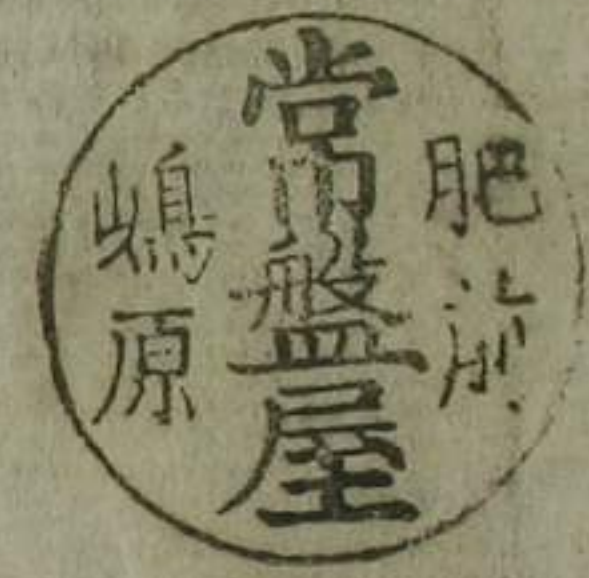 肥前
常盤屋
嶋原